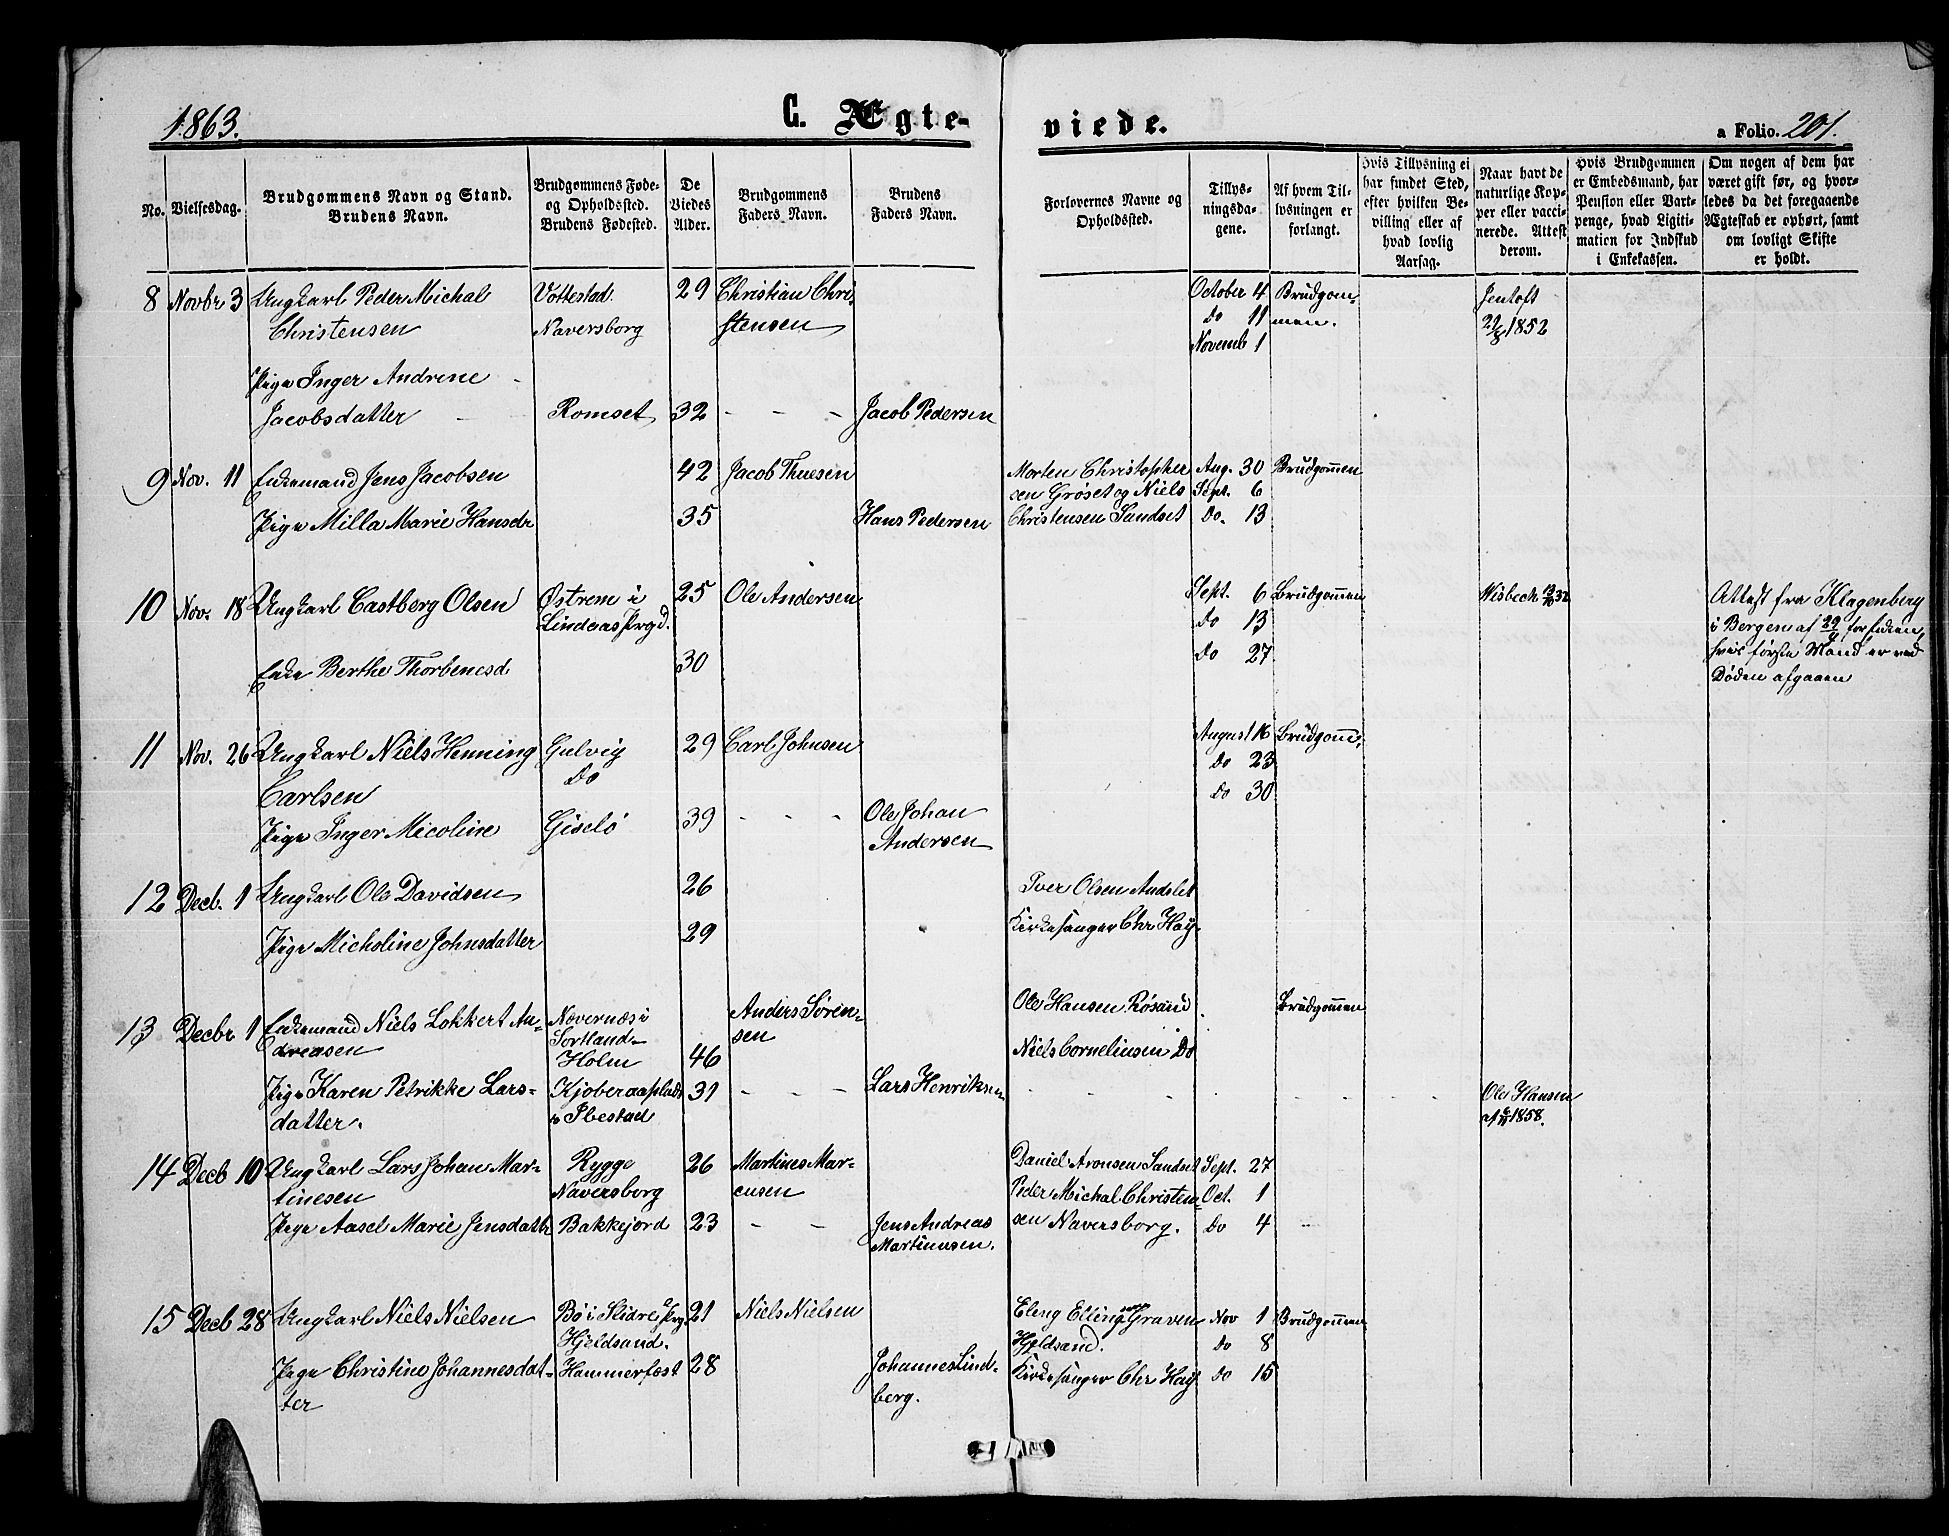 1863.
C. Ægte-
viede.
a Folio. 201.
No.
Vielsesdag.
Brudgommens Navn og Stand.
Brudens Navn.
Brudgommens Føde-
og Opholdssted.
Brudens Fødested.
De
Viedes
Alder.
Brudgommens
Faders Navn.
Brudens
Faders Navn.
Forlovernes Navne og
Opholdssted.
Tillys-
ningsda-
gene.
Af hvem Til-
lysningen er
forlangt.
Hvis Tillysning ei
har fundet Sted,
efter hvilken Be-
villing eller af
hvad lovlig
Aarsag.
Naar havt de
naturlige Kop-
per eller vacci-
nerede. Attest
derom.
Hvis Brudgommen
er Embedsmand, har
Pension eller Vart-
penge, hvad Ligiti-
mation for Indskud
i Enkekassen.
Om nogen af dem har
været gift før, og hvor-
ledes da det foregaaende
Ægteskab er ophørt, samt
om lovligt Skifte
er holdt.
8 Novbr 3 Ungkarl Peder Michal Vottestad. 29 Christian Chri October 4 Brudgom- Jentoft
Christensen Naversborg stensen Do 11 men. 1852
Novemb 1
Pige Inger Andrene
Jacobsdatter Romset 32 - - - Jacob Pedersen
9 Nov. 11 Enkemand Jens Jacobsen 42 Jacob Thuesen Morten Christopher Aug. 30 Brudgommen
sen Grøset og Niels Sept. 6
Pige Milla Marie Hansdr 35 Hans Pedersen Christensen Sandset Do. 13
10 Nov. 18 Ungkarl Castberg Olsen Østrem i 25 Ole Andersen Sept. 6 Brudgommen Wisbeck Attest fra Klagenberg
Lindaas Prgd. Do 13 i Bergen af 29 for Enken,
Enke Berthe Thorbenesd 30 Do 27 hvis første Mand er ved
Døden afgaaen
11 Nov. 26 Ungkarl Niels Henning Gulvig 29 Carl Johnsen August 16 Brudgom,
Do Do 23
Carlsen Do 30
Pige Inger Micoline Giselø 39 - - - Ole Johan
Andersen
12 Decb. 1 Ungkarl Ole Davidsen 26 Iver Olsen
Pige Micholine Johnsdatter 29 Kirkesanger Chr Høy
13 Decbr 1 Enkemand Niels Lokkert An- Novernæs i Anders Søren- Ole Hansen Røsand Brudgommen
dreasen Sortland- sen
Holm 46 Niels Corneliusen Do
Pige Karen Petrikke Lars- Kjoberaaplads 31 - - - Lars Henriksen - - - - - Ole Hansen
datter. i Ibestad af 1858.
14 Decb 10 Ungkarl Lars Johan Mar- Rygge 26 Martines Mar- Daniel Aronsen Sandset Sept. 27
tinesen Naversborg cusen Peder Michal Christen- Oct. 1
Pige Aasel Marie Jensdattr Bakkejord 23 - - Jens Andreas sen Naversborg. Do 4
Martinusen.
15 Decb 28 Ungkarl Niels Nielsen Bø i Slidre Prg 21 Niels Nielsen Eleng Elling Graven Nov 1 Brudgommen
Hjeldsand. Hjeldsand. Do 8
Pige Christine Johannesdat- Hammerfest 28 Johannes Lind- Kirkesanger Chr Høy Do 15
ter berg.